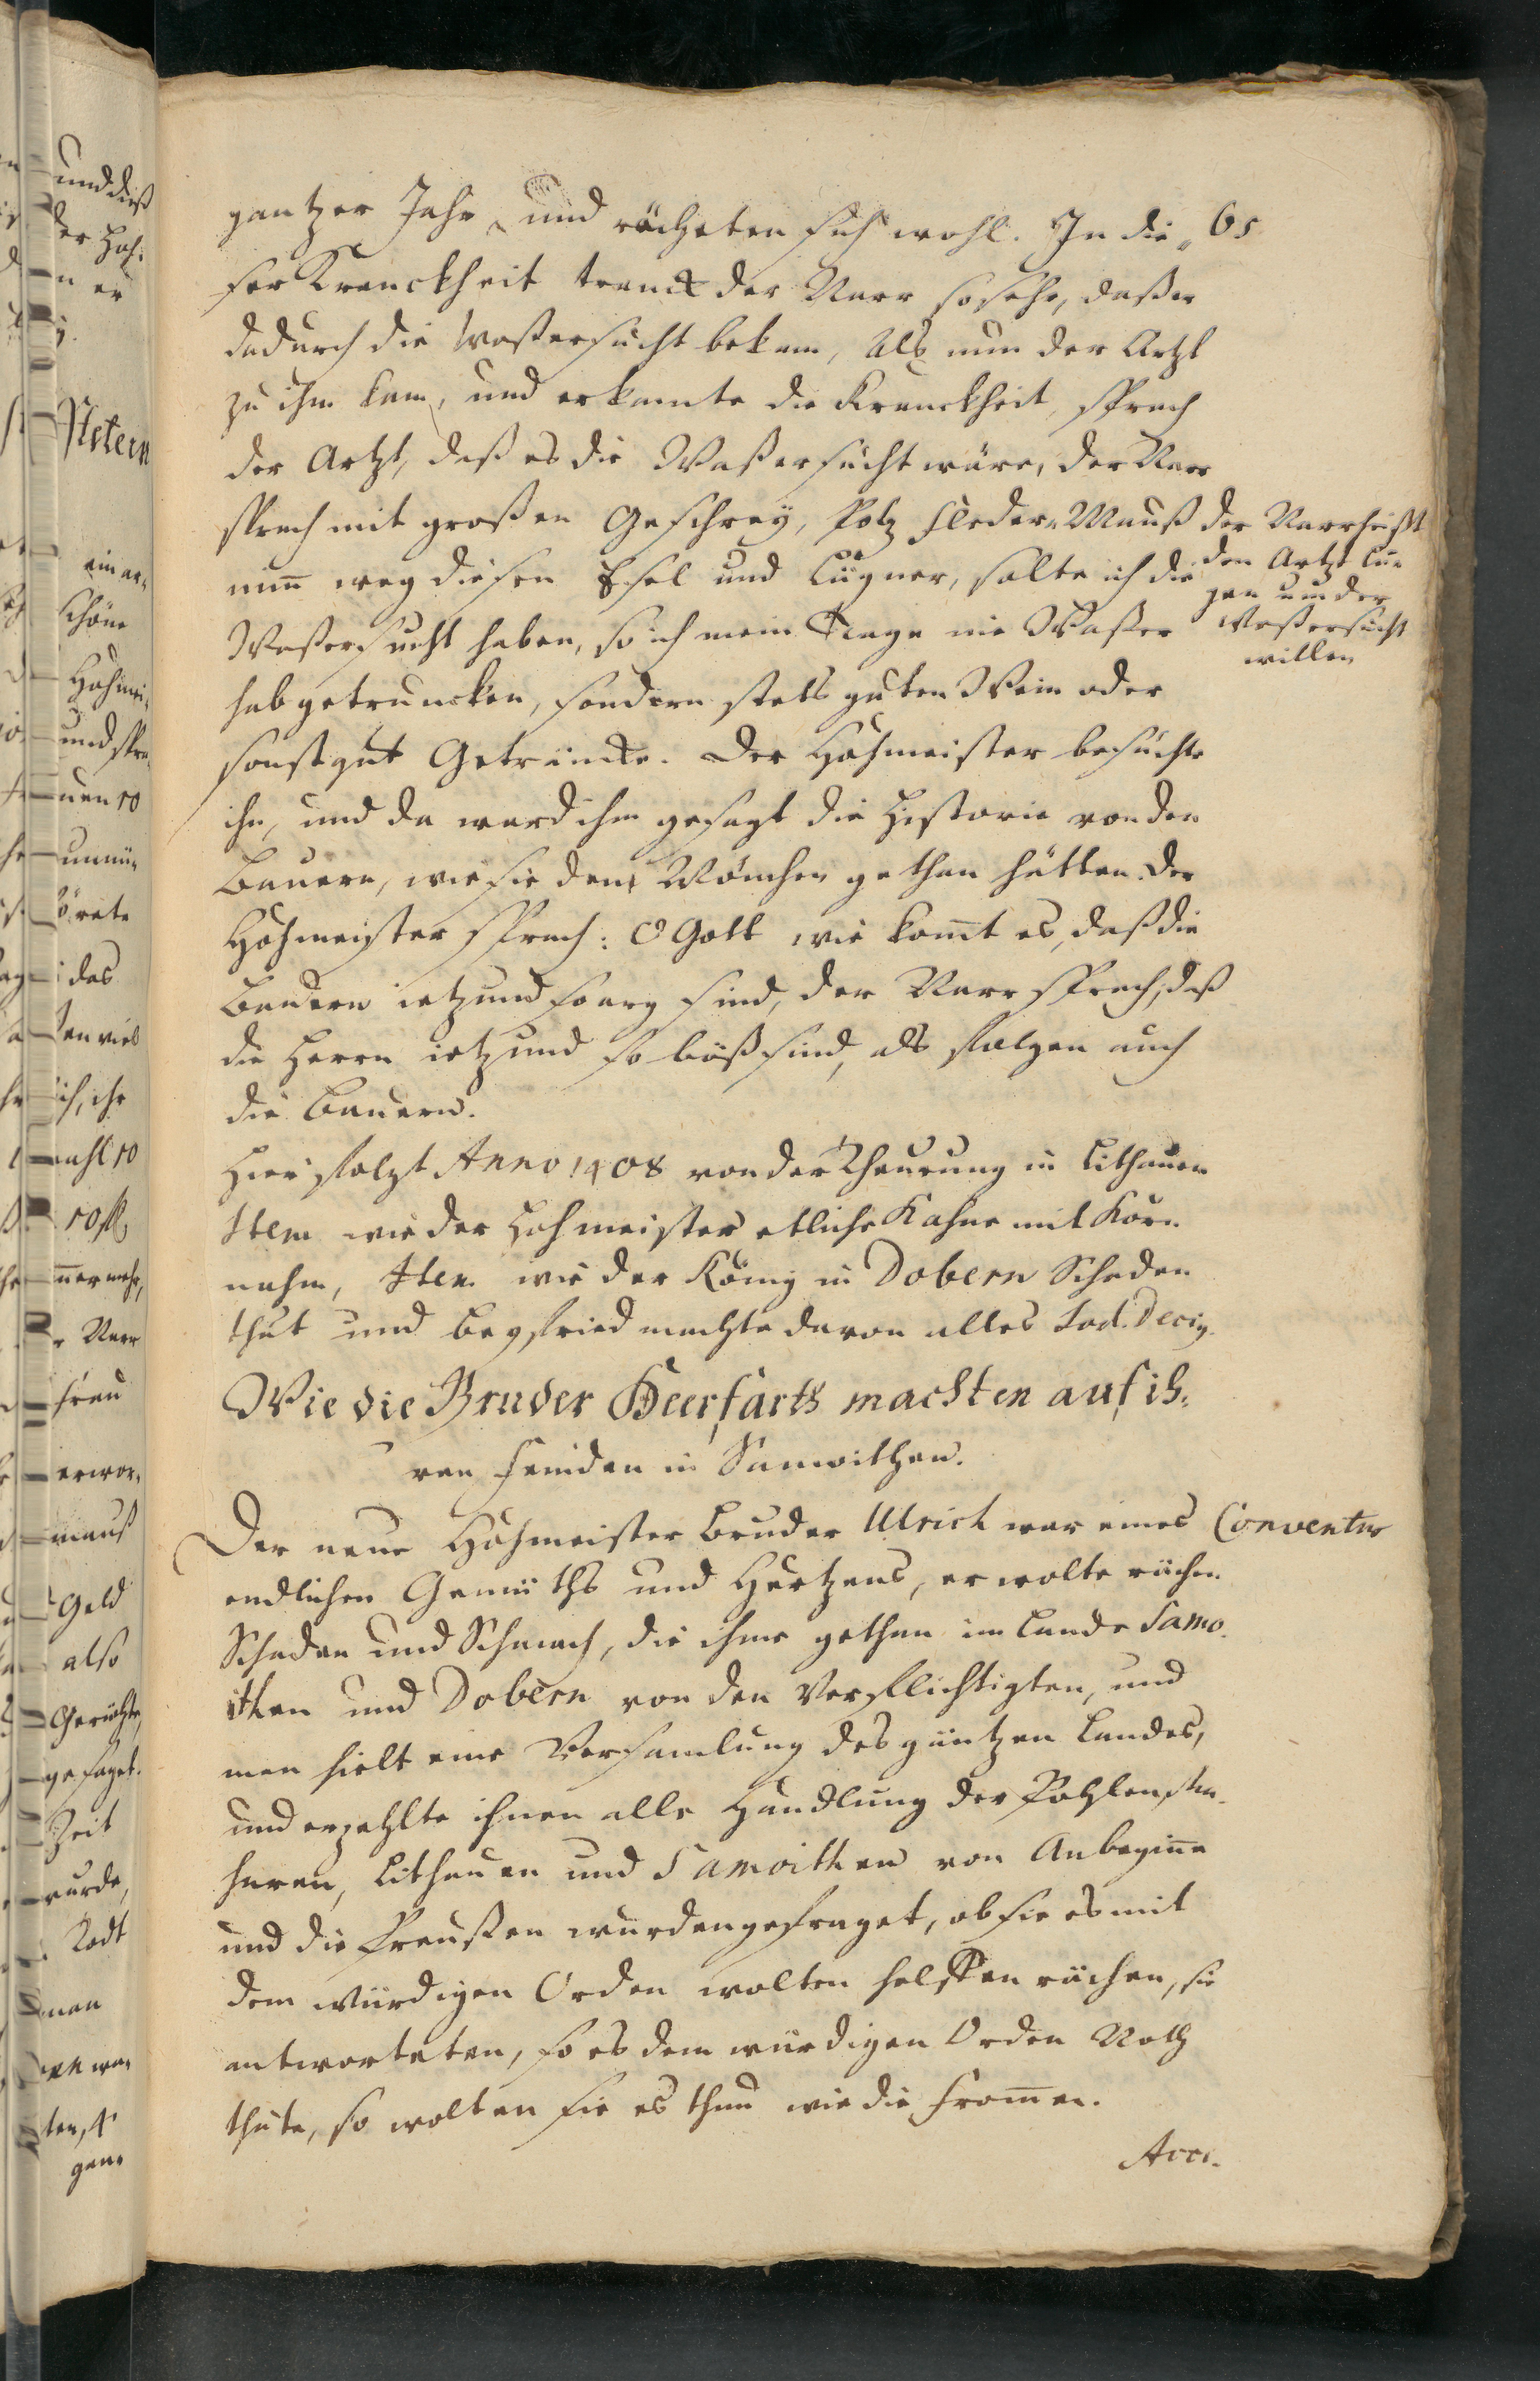 65
gantzer Jahr, und rächeten sich wohl. In die„
ser Kranckheit tranck der Narr so sehr, daß er
dadurch die Waßersucht bekam, Als nun der Artzt
zu ihm kam, und erkannte die Kranckheit, sprach
der Artzt, daß es die Waßersucht wäre, der Narr
sprach mit großen Geschrey, Potz Fleder-Mauß
nim̄ weg diesen Esel und Lügner, solte ich die
Waßersucht haben, so ich mein Tage nie Waßer
hab getruncken, sondern stets guten Wein oder
sonst gut Getrüncke. Der Hohmeister besuchte
ihn, und da ward ihm gesagt die Historie von den
Bauern, wie sie dem Mönchen gethan hätten. Der
Hohmeister sprach: O Gott wie kom̄t es, daß die
Bauern ietzund so arg sind, der Narr sprach, daß
die Herrn ietzund so böß sind, als folgen auch
die Bauern.
der Narr heißt
den Artzt lü„
gen um der
Waßersucht
willen
Hier folgt Anno 1408 von der Theurung in Lithauen
Item wie der Hohmeister etliche Kahne mit Korn
nahm, Item wie der König in Dobern Schaden
thut und Beyfried machte davon alles
Wie die Bruder Heerfarts machten auf ih„
ren Feinden in Samoithen.
Der neue Hohmeister Bruder Ulrich war eines
Conventus
endlichen Gemüths und Hertzens, er wolte rächen
Schaden und Schmach, die ihme gethan im Lande Samo„
ithen und Dobern von den Verpflichtigten, und
man hielt eine Versamlung des gantzen Landes,
und erzehlte ihnen alle Handlung der Pohlen
Lithauen und Samoithen von Anbegin̄e
und die Preußen wurden gefraget, ob sie es mit
dem würdigen Orden wolten helffen rächen, sie
antworteten, so es dem würdigen Orden Noth
thäte, so wolten sie es thun wie die From̄en.